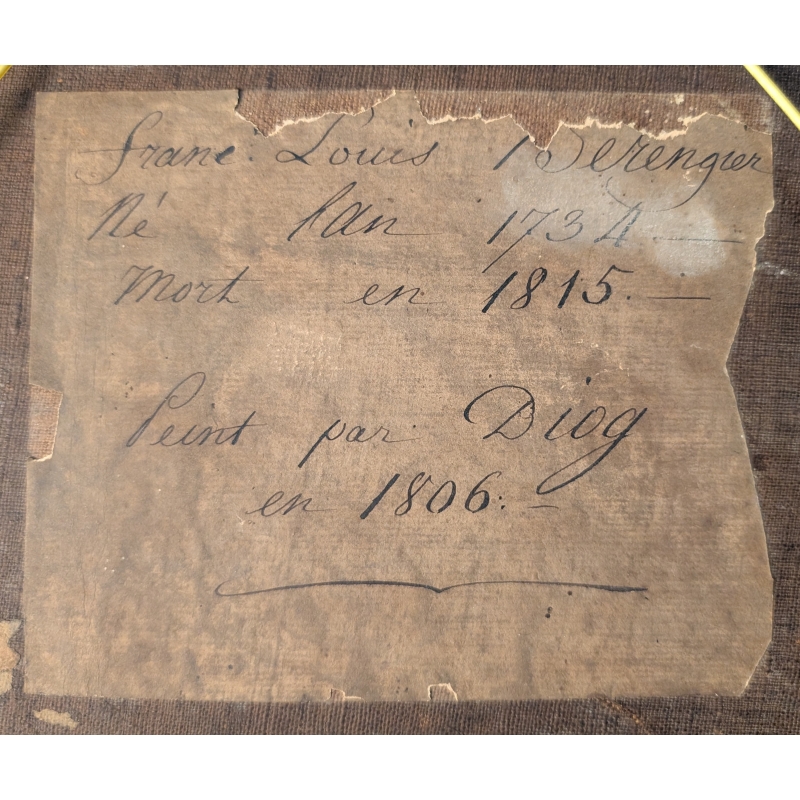 franc. Louis Berengier
Né l'an 1734 —
Mort en 1815. —
Peint par Diog
en 1806: —